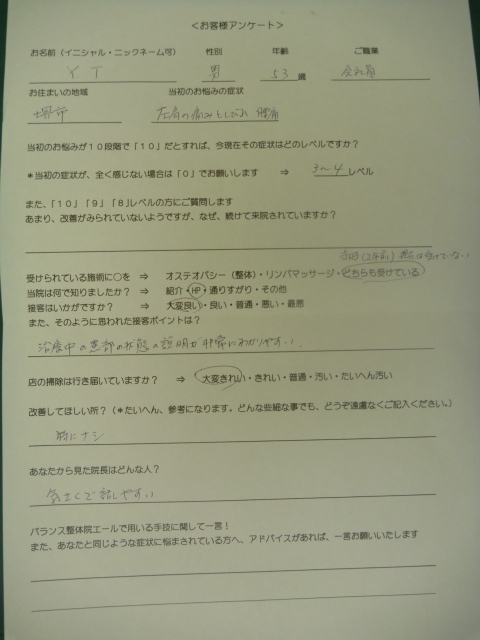 ＜お客様アンケート＞
お名前（イニシャル・ニックネーム可） 性別 年齢 ご職業
YT 男 53歳 会社員
お住まいの地域 当初のお悩みの症状
堺市 左肩の痛みとしびれ 腰痛
当初のお悩みが１０段階で「１０」だとすれば、今現在その症状はどのレベルですか？
＊当初の症状が、全く感じない場合は「０」でお願いします ⇒ 3～4レベル
また、「１０」「９」「８」レベルの方にご質問します
あまり、改善がみられていないようですが、なぜ、続けて来院されていますか？
は受けていない
受けられている施術に○を ⇒ オステオパシー（整体）・リンパマッサージ・どちらも受けている
当院は何で知りましたか？ ⇒ 紹介・HP・通りすがり・その他
接客はいかがですか？ ⇒ 大変良い・良い・普通・悪い・最悪
また、そのように思われた接客ポイントは？
治療中の患部の状態の説明が非常にわかりやすい。
店の掃除は行き届いていますか？ ⇒ 大変きれい・きれい・普通・汚い・たいへん汚い
改善してほしい所？（＊たいへん、参考になります。どんな些細な事でも、どうぞ遠慮なくご記入ください。）
特にナシ
あなたから見た院長はどんな人？
気さくで話しやすい
バランス整体院エールで用いる手技に関して一言！
また、あなたと同じような症状に悩まされている方へ、アドバイスがあれば、一言お願いいたします